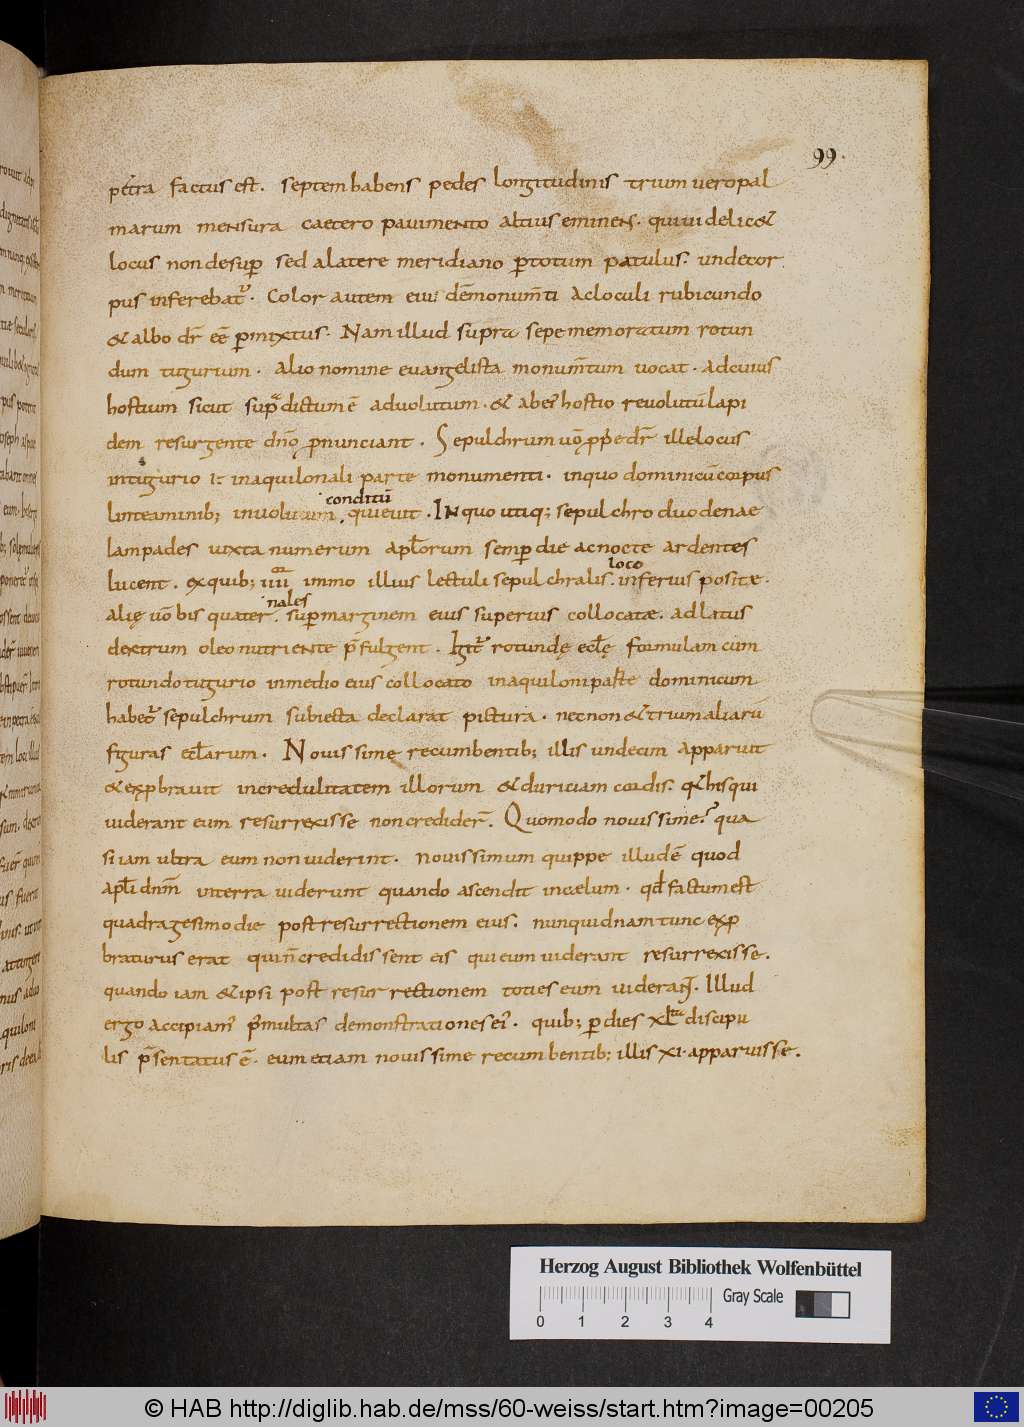 99.
petra factus est. septem habens pedes longitudinis trium vero pal
marum mensura caetero pavimento altius eminens. qui videlic&
locus non desup̄ sed a latere meridiano p̱ totum patulus. unde cor
pus inferebat᷑. Color autem eius dēmonum̄ti ac loculi rubicundo
& albo dr̄ eē p̱mixtus. Nam illud supra sepe memoratum rotun
dum tugurium. alio nomine evangelista monum̄tum vocat. ad cuius
hostium sicut supra dictum ē advolutum. & ab eius hostio revolutū lapi
dem resurgente dn̄o p̱nunciant. Sepulchrum vō p̱p̱e dr̄ ille locus
in tugurio .i. in aquilonali parte monumenti. in quo dominicū corpus
conditū
linteaminib; involutum, quievit. In quo utiq; sepulchro duodenae
lampades iuxta numerum apl̄orum semp̱ die ac nocte ardentes
loco
lucent. ex quib; iiii immo illius lectuli sepulchralis. inferius positae.
nales
alię vō bis quater. sup̱ marginem eius superius collocatae. ad latus
dextrum oleo nutriente p̄fulgent. Igit᷑ rotundę eccl̄ę formulam cum
rotundo tugurio in medio eius collocato in aquiloni parte dominicum
habet᷑ sepulchrum subiecta declarat pictura. necnon & trium aliarū
figuras eccl̄arum. Novissime recumbentib; illis undecim apparuit
& exp̱bravit incredulitatem illorum & duriciam cordis. q̄ his qui
viderant eum resurrexisse non credider̄. Quomodo novissime? qua
si iam ultra eum non viderint. novissimum quippe illud ē quod
apl̄i dnm̄ in terra viderunt quando ascendit in caelum. qd̄ factum est
quadragesimo die post resurrectionem eius. nunquidnam tunc exp̱
braturus erat quin̄ credidissent eis qui eum viderant resurrexisse.
quando iam & ipsi post resurrectionem toties eum viderant. Illud
ergo accipiam᷒ p̱ multas demonstrationes ei᷒. quib; p̱ dies xl discipu
lis p̄sentatus ē. eum etiam novissime recumbentib; illis xi. apparuisse.
Herzog August Bibliothek Wolfenbüttel
Gray Scale
0 1 2 3 4
© HAB http://diglib.hab.de/mss/60-weiss/start.htm?image=00205